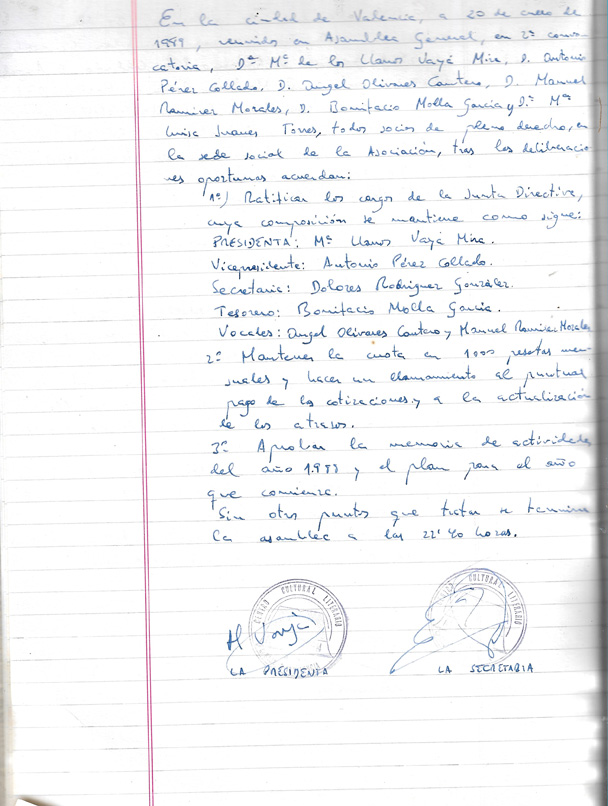 En la ciudad de Valencia, a 20 de enero de
1989, reunidos en Asamblea General, en 2ª convo
catoria, Dª Mª de los Llanos Vayá Mira, D. Antonio
Pérez Collado, D. Angel Olivares Cantero, D. Manuel
Ramirez Morales, D. Bonifacio Molla Garcia y Dª Mª
Luisa Juanes Torres, todos socios de pleno derecho, en
la sede social de la Asociación, tras las deliberacio
nes oportunas acuerdan:
1º) Ratificar los cargos de la Junta Directiva,
cuya composición se mantiene como sigue:
PRESIDENTA: Mª Llanos Vayá Mira.
Vicepresidente: Antonio Pérez Collado.
Secretaria: Dolores Rodriguez González.
Tesorero: Bonifacio Molla Garcia.
Vocales: Angel Olivares Cantero y Manuel Ramirez Morales
2º Mantener la cuota en 1000 pesetas men-
suales y hacer un llamamiento al puntual
pago de las cotizaciones y a la actualización
de los atrasos.
3º Aprobar la memoria de actividades
del año 1.988 y el plan para el año
que comienza.
Sin otros puntos que tratar se termina
la asamblea a las 22'40 horas.
CULTURAL LITERARIO
CULTURAL LITERARIO
M Vayá
LA PRESIDENTA
LA SECRETARIA